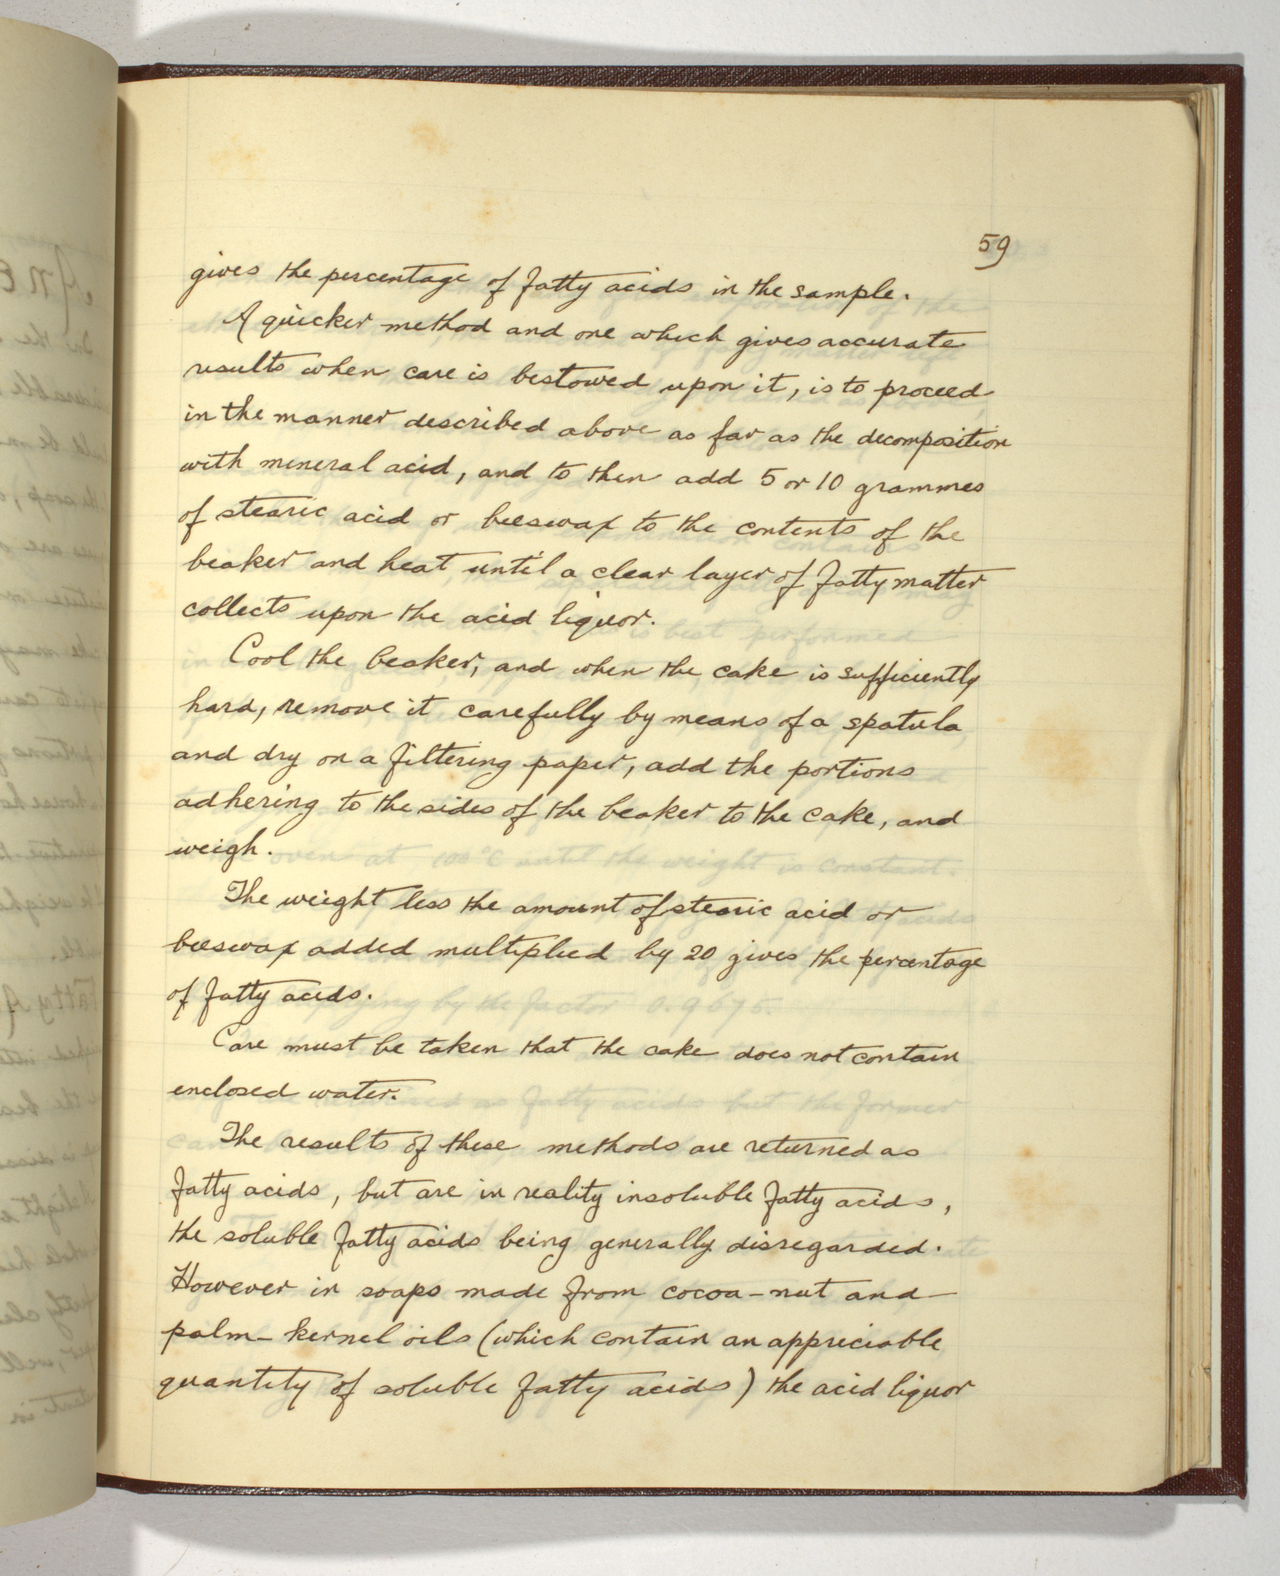 59
gives the percentage of fatty acids in the sample.
A quicker method and one which gives accurate
results when care is bestowed upon it, is to proceed
in the manner described above as far as the decomposition
with mineral acid, and to then add 5 or 10 grammes
of stearic acid or beeswax to the contents of the
beaker and heat until a clear layer of fatty matter
collects upon the acid liquor.
Cool the beaker, and when the cake is sufficiently
hard, remove it carefully by means of a spatula
and dry on a filtering paper, add the portions
adhering to the sides of the beaker to the cake, and
weigh.
The weight less the amount of stearic acid or
beeswax added multiplied by 20 gives the percentage
of fatty acids.
Care must be taken that the cake does not contain
enclosed water.
The results of these methods are returned as
fatty acids, but are in reality insoluble fatty acids,
the soluble fatty acids being generally disregarded.
However in soaps made from cocoa-nut and
palm-kernel oils (which contain an appreciable
quantity of soluble fatty acids) the acid liquor